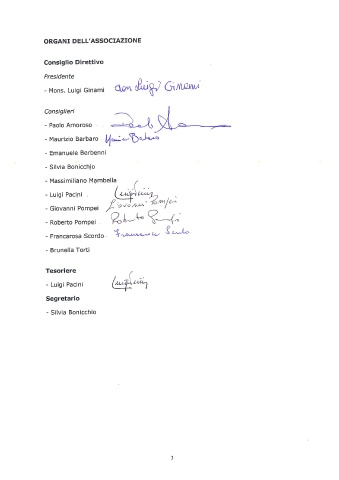 ORGANI DELL'ASSOCIAZIONE
Consiglio Direttivo
Presidente
- Mons. Luigi Ginami don Luigi Ginami
Consiglieri
- Paolo Amoroso
- Maurizio Barbaro
- Emanuele Berbenni
- Silvia Bonicchio
- Massimiliano Mambella
- Luigi Pacini
- Giovanni Pompei Giovanni Pompei
- Roberto Pompei Roberto
- Francarosa Scordo
- Brunella Torti
Tesoriere
- Luigi Pacini
Segretario
- Silvia Bonicchio
3